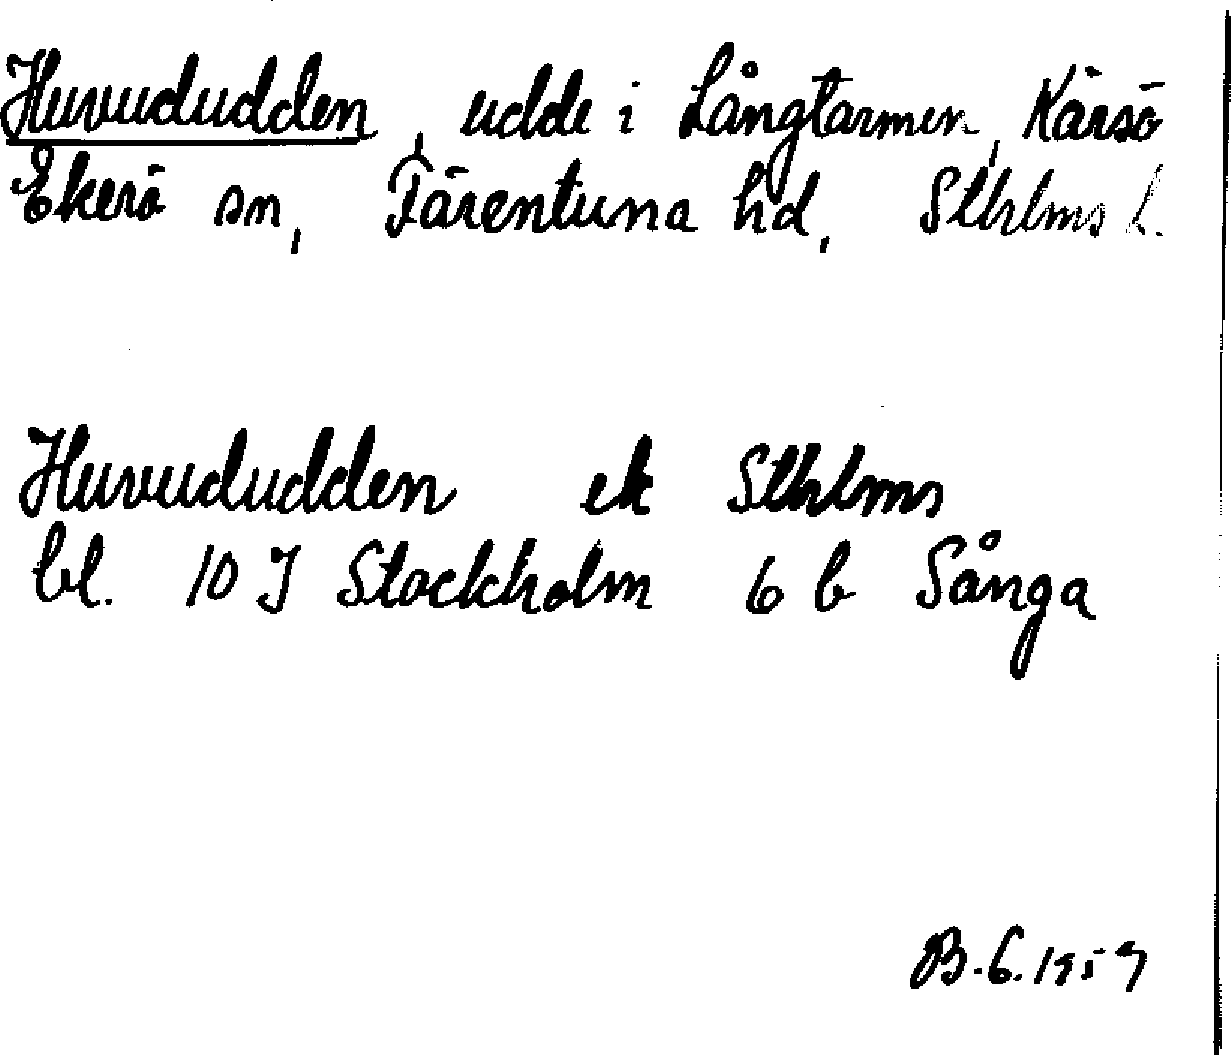 Huvududden, udde i Långtarmen, Kärsö
Ekerö sn, Färentuna hd, Sthlms l.
Huvududden ek Sthlms
bl. 10 I Stockholm 6 b Sånga
B.G. 1959